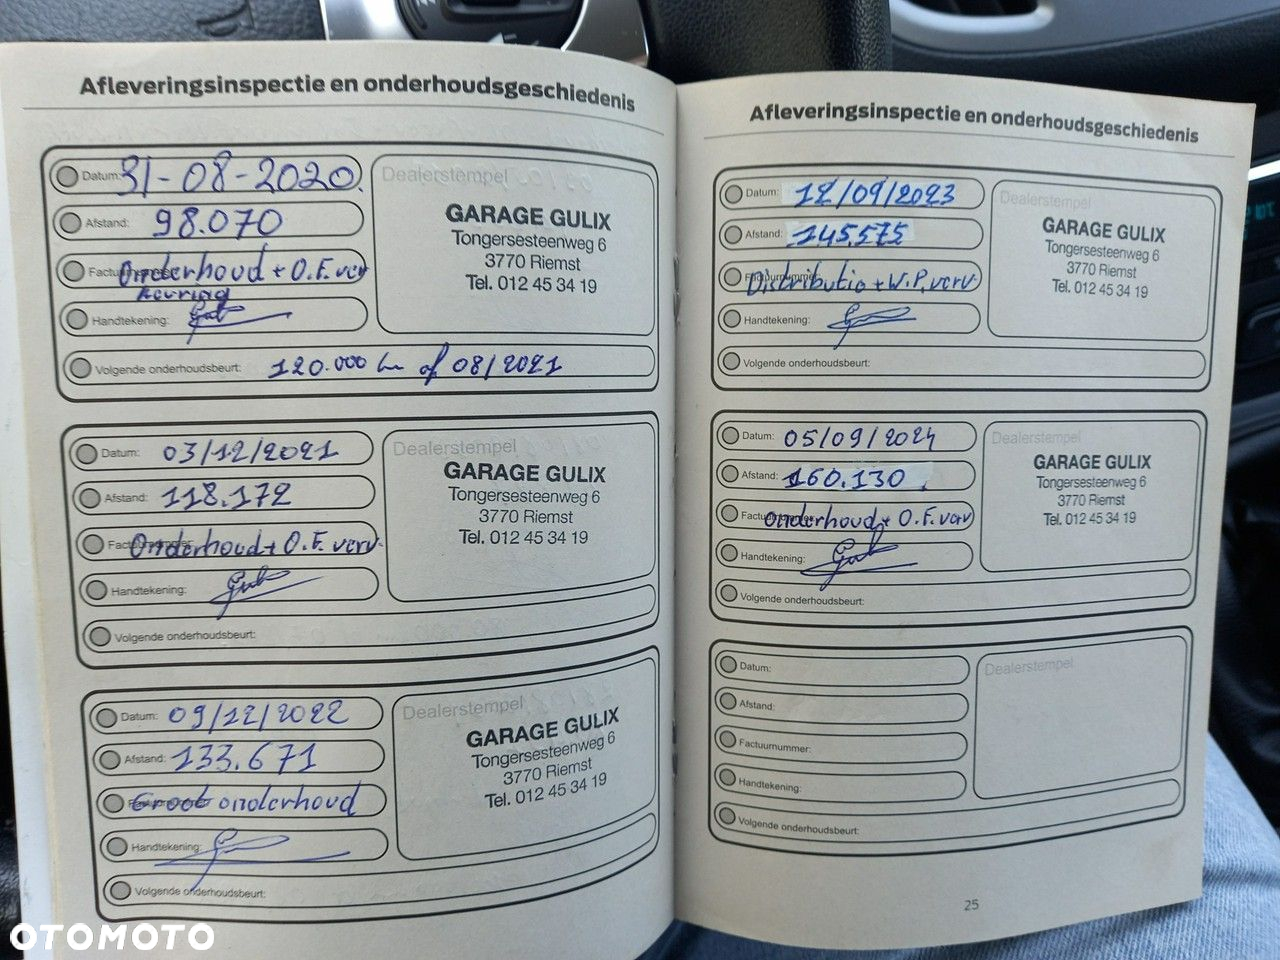 Afleveringsinspectie en onderhoudsgeschiedenis
Datum: 31-08-2020.
Afstand: 98.070
Onderhoud + O.F. verv
keuring
Handtekening:
Volgende onderhoudsbeurt: 120.000 km of 08/2021
Dealerstempel
GARAGE GULIX
Tongersesteenweg 6
3770 Riemst
Tel. 012 45 34 19
Datum: 03/12/2021
Afstand: 118.172
Onderhoud + O.F. verv.
Handtekening:
Volgende onderhoudsbeurt:
Dealerstempel
GARAGE GULIX
Tongersesteenweg 6
3770 Riemst
Tel. 012 45 34 19
Datum: 09/12/2022
Afstand: 133.671
Groot onderhoud
Handtekening:
Volgende onderhoudsbeurt:
Dealerstempel
GARAGE GULIX
Tongersesteenweg 6
3770 Riemst
Tel. 012 45 34 19
Afleveringsinspectie en onderhoudsgeschiedenis
Datum: 12/09/2023
Afstand: 145.575
Factuurnummer: Distributie + W.P. verv.
Handtekening:
Volgende onderhoudsbeurt:
Dealerstempel
GARAGE GULIX
Tongersesteenweg 6
3770 Riemst
Tel. 012 45 34 19
Datum: 05/09/2024
Afstand: 160.130
Onderhoud + O.F. verv
Handtekening:
Volgende onderhoudsbeurt:
Dealerstempel
GARAGE GULIX
Tongersesteenweg 6
3770 Riemst
Tel. 012 45 34 19
Datum:
Afstand:
Factuurnummer:
Handtekening:
Volgende onderhoudsbeurt:
Dealerstempel
25
OTOMOTO